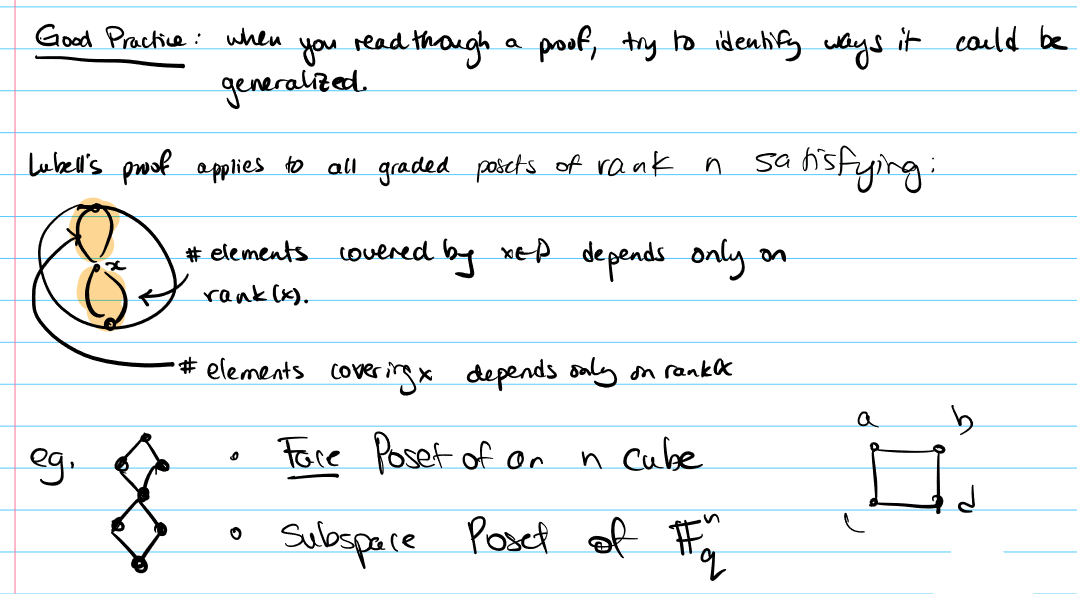 Good Practice: when you read through a proof, try to identify ways it could be
generalized.
Lubell's proof applies to all graded posets of rank n satisfying:
x
# elements covered by x∈P depends only on
rank(x).
# elements covering x depends only on rank x
a b
eg. • Face Poset of an n cube
c d
• Subspace Poset of 𝔽_q^n